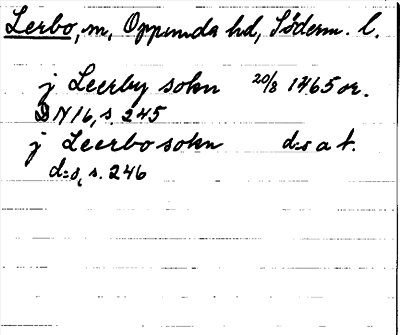 Lerbo, m, Oppunda hd, Söderm. l.
j Leerby sokn 20/8 1465 or.
DN 16, s. 245
j Leerbo sokn d:s a t.
d:o, s. 246